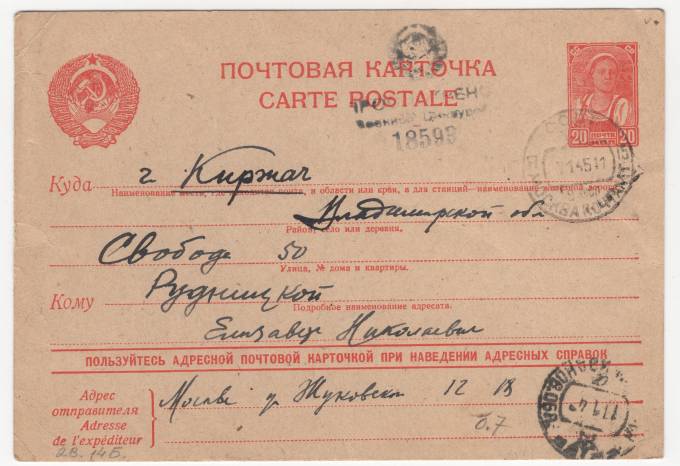 ПОЧТОВАЯ КАРТОЧКА
CARTE POSTALE
Военной Цензурой
18593
20 ПОЧТА 20
Куда г. Киржач
Наименование места, где находится почта, и области или края, а для станций—наименование железной дороги
Владимирской обл
Район, село или деревня.
Свобода 50
Улица, № дома и квартиры.
Кому Рудницкой
Подробное наименование адресата.
Елизавете Николаевне
ПОЛЬЗУЙТЕСЬ АДРЕСНОЙ ПОЧТОВОЙ КАРТОЧКОЙ ПРИ НАВЕДЕНИИ АДРЕСНЫХ СПРАВОК
Адрес отправителя
Adresse de l'expéditeur
Москва у. Жуковского 12